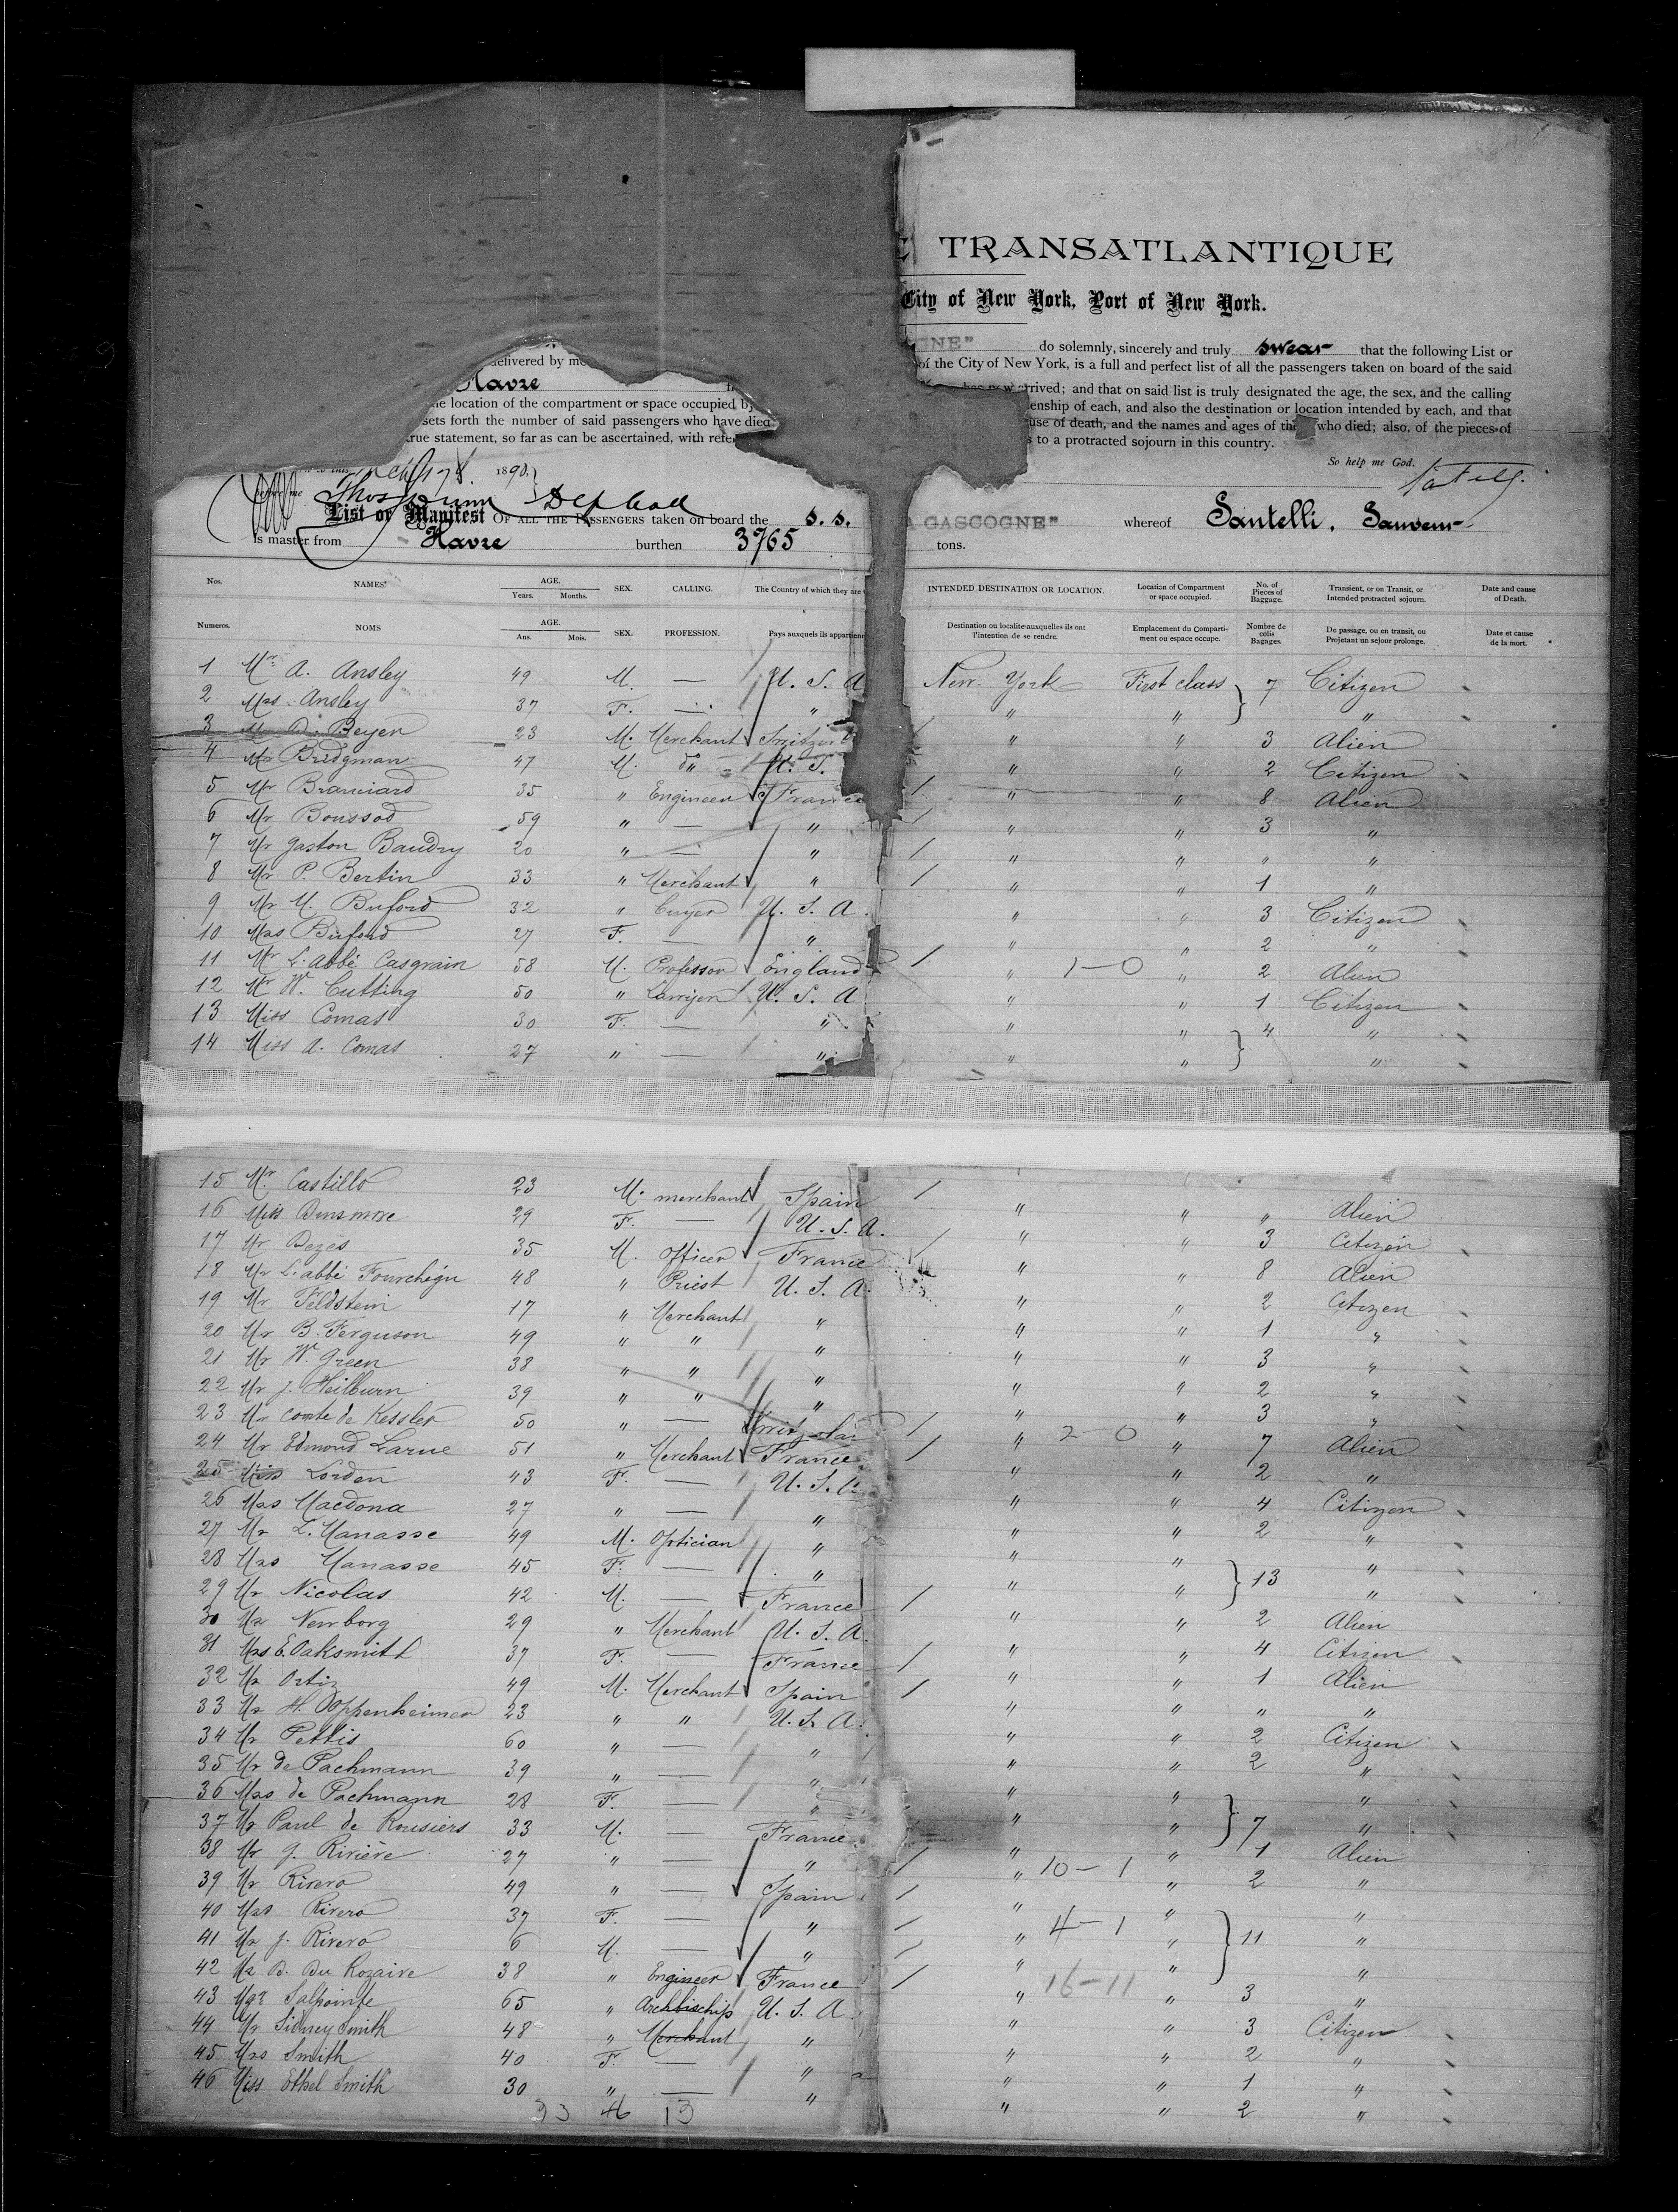 TRANSATLANTIQUE
City of New York, Port of New York.
GNE" do solemnly, sincerely and truly swear that the following List or
delivered by me of the City of New York, is a full and perfect list of all the passengers taken on board of the said
Havre has now arrived; and that on said list is truly designated the age, the sex, and the calling
the location of the compartment or space occupied by enship of each, and also the destination or location intended by each, and that
sets forth the number of said passengers who have died use of death, and the names and ages of who died; also, of the pieces of
true statement, so far as can be ascertained, with refer s to a protracted sojourn in this country.
So help me God.
1890.
before me Thos Dunn Dep Coll Santelli
List or Manifest OF ALL THE PASSENGERS taken on board the s. s. A GASCOGNE" whereof Santelli, Sauveur
is master from Havre burthen 3765 tons.
Nos. NAMES AGE. Years. Months. SEX. CALLING. The Country of which they are INTENDED DESTINATION OR LOCATION. Location of Compartment or space occupied. No. of Pieces of Baggage. Transient, or on Transit, or Intended protracted sojourn. Date and cause of Death.
Numeros. NOMS AGE. Ans. Mois. SEX. PROFESSION. Pays auxquels ils appartienn Destination ou localite auxquelles ils ont l'intention de se rendre. Emplacement du Compartiment ou espace occupe. Nombre de colis Bagages. De passage, ou en transit, ou Projetant un sejour prolonge. Date et cause de la mort.
1 Mr A. Ansley 49 M. — U. S. A New York First class 7 Citizen
2 Mrs Ansley 37 F. — " " " "
3 M D. Beyer 23 M. Merchant Switzerl " " 3 Alien
4 Mr Bridgman 47 M. do U. S. " " 2 Citizen
5 Mr Branciard 35 " Engineer France " " 8 Alien
6 Mr Boussod 59 " — " " " 3 "
7 Mr Gaston Baudry 20 " — " " " " "
8 Mr P. Bertin 33 " Merchant " " " 1 "
9 Mr M. Buford 32 " U. S. A. " " 3 Citizen
10 Mrs Buford 27 F. — " " " 2 "
11 Mr L'abbé Casgrain 58 M. Professor England " 1-0 " 2 Alien
12 Mr W. Cutting 50 " U. S. A " " 1 Citizen
13 Miss Comas 30 F. — " " " 4 "
14 Miss A. Comas 27 " — " " " "
15 Mr Castillo 23 M. merchant Spain " " " Alien
16 Miss Dinsmore 29 F. — U. S. A. " " 3 Citizen
17 Mr Dezes 35 M. Officer France " " 8 Alien
18 Mr L'abbé Fourchégu 48 " Priest U. S. A. " " 2 Citizen
19 Mr Feldstein 17 " Merchant " " " 1 "
20 Mr B. Ferguson 49 " " " " " 3 "
21 Mr W. Green 38 " " " " " 2 "
22 Mr J. Heilburn 39 " " " " " 3 "
23 Mr Comte de Kessler 50 " — " 2-0 " 7 Alien
24 Mr Edmond Larue 51 " Merchant France " " 2 "
25 Miss Lorden 43 F. — U. S. A " " 4 Citizen
26 Mrs Macdona 27 " — " " " 2 "
27 Mr L. Manasse 49 M. Optician " " " 13 "
28 Mrs Manasse 45 F. — " " " "
29 Mr Nicolas 42 M. — France " " 2 Alien
30 Mr Newborg 29 " Merchant U. S. A. " " 4 Citizen
31 Mrs E. Oaksmith 37 F. — France " " 1 Alien
32 Mr Ortiz 49 M. Merchant Spain " " " "
33 Mr H. Oppenheimer 23 " " U. S. A. " " 2 Citizen
34 Mr Pettis 60 " — " " " 2 "
35 Mr de Pachmann 39 " — " " " 7 "
36 Mrs de Pachmann 28 F. — " " " "
37 Mr Paul de Rousiers 33 M. — France " " 1 Alien
38 Mr G. Rivière 27 " — " " 10-1 " 2 "
39 Mr Rivero 49 " — Spain " " 11 "
40 Mrs Rivero 37 F. — " " 4-1 " "
41 Mr J. Rivero 6 M. — " " " "
42 Mr D. Du Rozaire 38 " Engineer France " 16-11 " 3 "
43 Mgr Salpointe 65 " Archbischip U. S. A. " " 3 Citizen
44 Mr Sidney Smith 48 " Merchant " " " 2 "
45 Mrs Smith 40 F. — " " " 1 "
46 Miss Ethel Smith 30 " — " " " 2 "
33 13